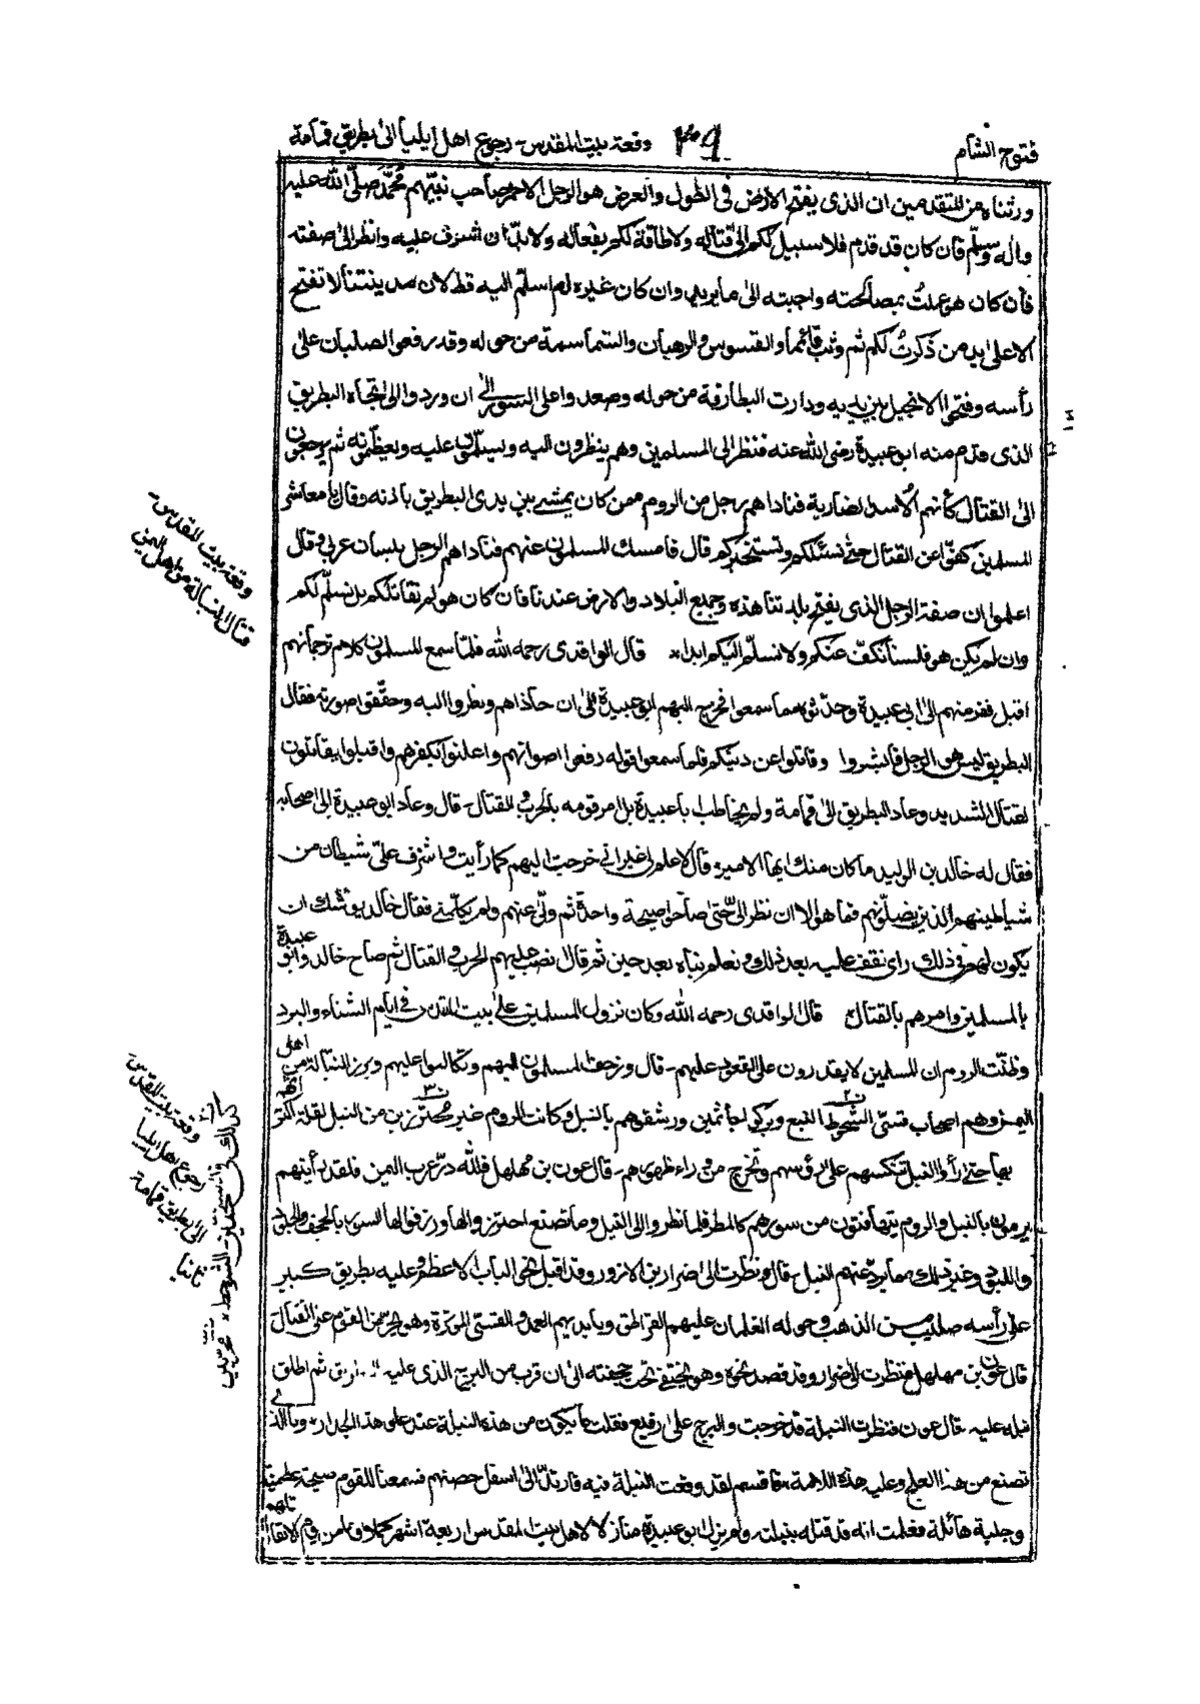 فتوح الشام
٣٠٩
وقعة بيت المقدس - رجوع اهل ايليا الى بطريق قمامة
ورثناه من المتقدمين ان الذى يفتح الارض فى الطول والعرض هو الرجل الاحمر صاحب نبيّهم محمّد صلّى الله عليه
واله وسلّم فان كان قد قدم فلا سبيل لكم الى قتاله ولا طاقة لكم بفعاله ولا بدّ ان اشرف عليه وانظر الى صفته
فان كان هو عملتُ بمصالحته واجبته الى ما يريد وان كان غيره لم اسلّم اليه قط لان مدينتنا لا تفتح
الا على يد من ذكرتُ لكم ثم وثب قائما والقسوس والرهبان والشمامسة من حوله وقد رفعوا الصلبان على
رأسه وفتحوا الانجيل بين يديه ودارت البطارقة من حوله وصعدوا على السور الى ان وردوا الى اتجاه البطريق
الذى قدم منه ابو عبيدة رضى الله عنه فنظر الى المسلمين وهم ينظرون اليه ويسلّمون عليه ويعظّمونه ثم يرجعون
الى القتال كأنهم الأسد الضارية فناداهم رجل من الروم ممن كان يمشى بين يدى البطريق باذنه وقال يا معاشر
المسلمين كفوّا عن القتال حتى نسئلكم ونستخبركم قال فامسك المسلمون عنهم فناداهم الرجل بلسان عربى وقال
اعلموا ان صفة الرجل الذى يفتح بلدتنا هذه وجميع البلاد والارض عندنا فان كان هو لم نقاتلكم بل نسلّم لكم
وان لم يكن هو فلسنا نكفّ عنكم ولا نسلّم اليكم ابدا* قال الواقدى رحمه الله فلمّا سمع المسلمون كلامهم ترجمانهم
اقبل نفر منهم الى ابى عبيدة وحدّثوه مما سمعوا فخرج اليهم ابو عبيدة الى ان حاذاهم ونظروا اليه وحقّقوا صورته فقال
البطريق ليس هو الرجل فابشروا وقاتلوا عن دينكم فلما سمعوا قوله رفعوا اصواتهم واعلنوا بكفرهم واقبلوا يقاتلون
لقتال الشديد وعاد البطريق الى قمامة ولم يخاطب با عبيدة بل امر قومه بالحرب والقتال - قال وعاد ابو عبيدة الى اصحابه
فقال له خالد بن الوليد ما كان منك ايها الامير قال لا علم لى غير انى خرجت اليهم كما رأيت واشرف علىّ شيطان من
شياطينهم الذين يضلّونهم فما هو الا ان نظر الىّ حتى صاحوا صيحة واحدة ثم ولّى عنهم ولم يكلّمنى فقال خالد يوشك ان
يكون لهم فى ذلك راى نقف عليه بعد ذلك ونعلم نباه بعد حين ثم قال نصب عليهم الحرب والقتال ثم صاح خالد وابو عبيدة
بالمسلمين وامرهم بالقتال* قال الواقدى رحمه الله وكان نزول المسلمين على بيت المقدس فى ايام الشتاء والبرد
وظنّت الروم ان المسلمين لا يقدرون على القعود عليهم - قال وزحف المسلمون اليهم وتكالبوا عليهم وبرز النبّالة من اهل
اليمن وهم اصحاب قسىّ الشوحط النبع وبركوا جاثمين ورشقوهم بالنبل وكانت الروم غير محترزين من النبل لقلة اكتراثهم
بها حتى رأوا النبل تنكسهم على رؤسهم وتخرج من وراء ظهورهم - قال عون بن مهلهل فلله درّ عرب اليمن فلقد رأيتهم
يرمون بالنبل والروم يتهافتون من سورهم كالمطر فلما نظروا الى النبل وما تصنع احترزوا لها وزرفوا لها السور بالجحف والجلود
واللبود وغير ذلك مما يردّ عنهم النبل - قال ونظرت الى ضرار بن الازور وقد اقبل نحو الباب الاعظم وعليه بطريق كبير
على رأسه صليب من الذهب وحوله الغلمان عليهم القراطق وبايديهم العمد والقسىّ الموترة وهو يحرّض القوم على القتال
قال عون بن مهلهل فنظرت الى ضرار وقد قصد نحوه وهو يختفى تحت جحفته الى ان قرب من البرج الذى عليه ثم اطلق
نبله عليه - قال عون فنظرت النبلة قد خرجت والبرج على رفيع فقلت ما يكون من هذه النبلة عند على هذا الجدار وبالذى
تصنع من هذا العلج وعليه هذه اللامة فاقسم لقد وقعت النبلة فيه فارتدّ الى اسفل حصنهم فسمعنا للقوم صيحة عظيمة
وجلبة هائلة فعلمت انه قد قتله بنبلته ولم يزل ابو عبيدة منازلا لاهل بيت المقدس اربعة اشهر كملا وما من يوم الا نقاتلهم
وقعة بيت المقدس -
قتال النبالة من اهل اليمن
وقعة بيت المقدس
رجوع اهل ايليا
الى بطريق قمامة
ثانيا